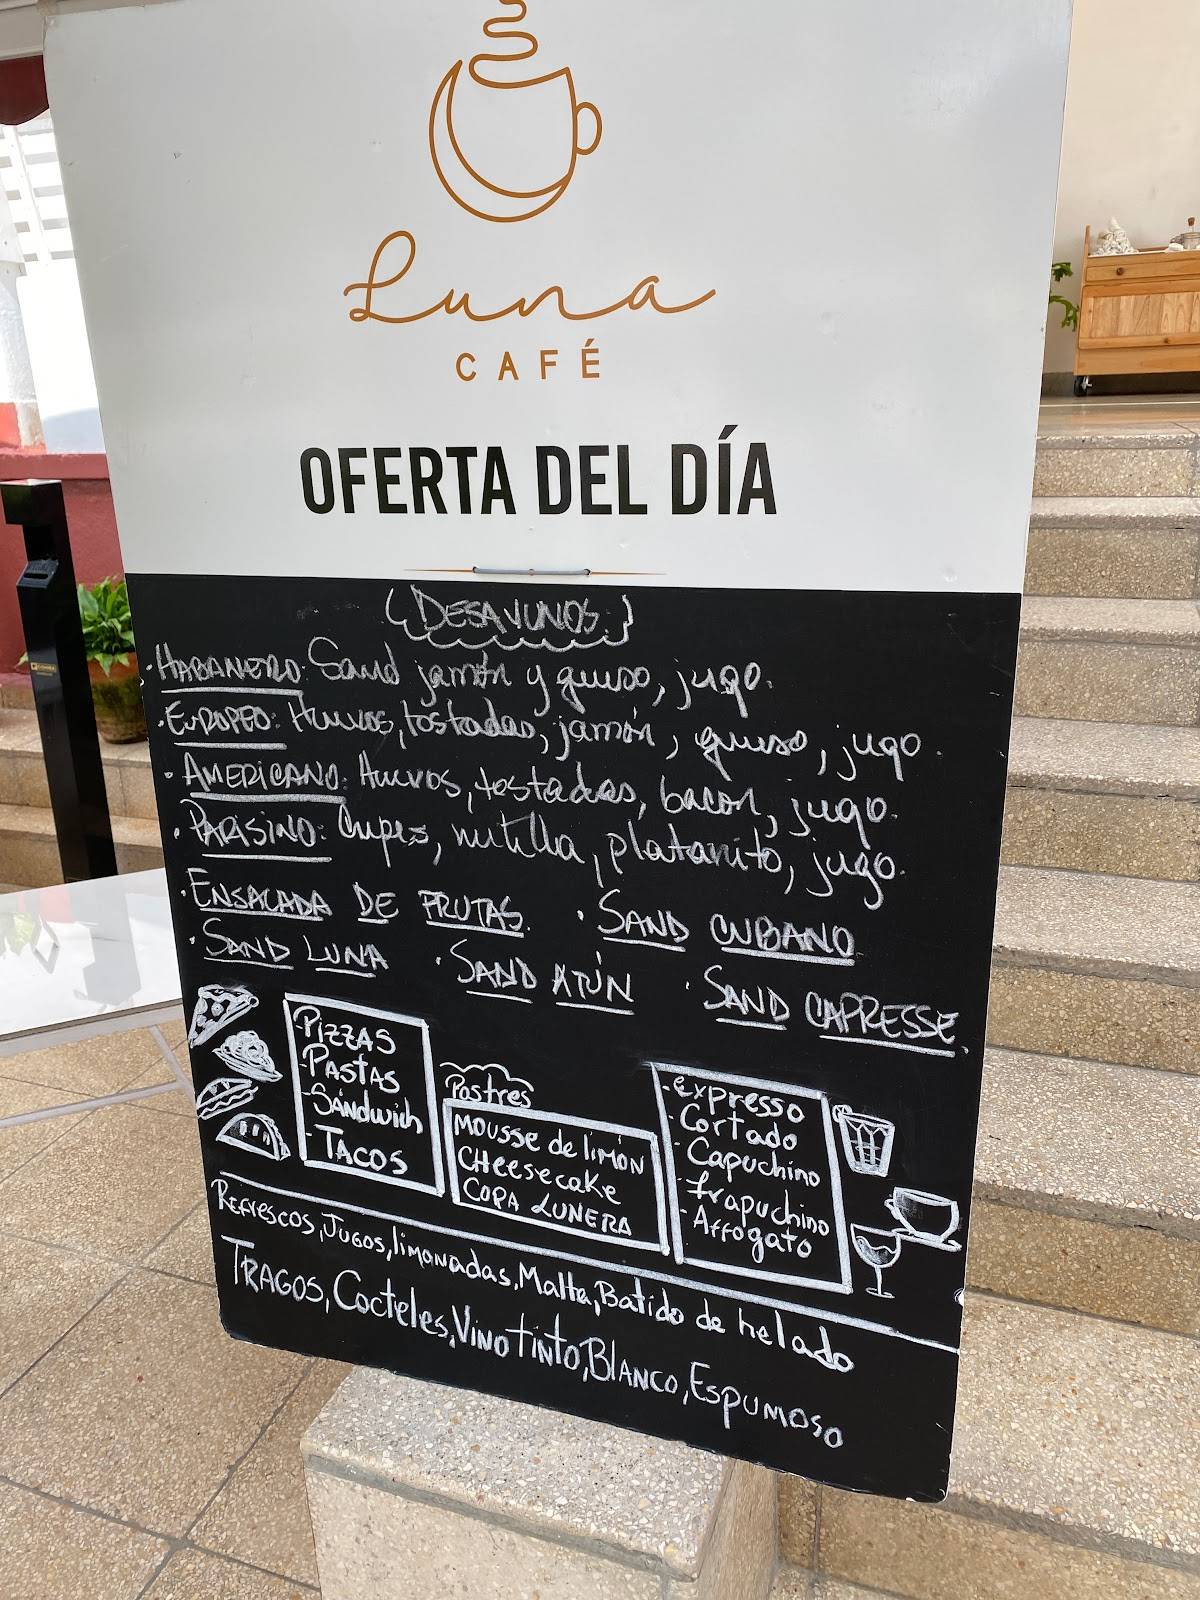 Luna
CAFÉ
OFERTA DEL DÍA
DESAYUNOS:
· HABANERO: Sand jamón y queso, jugo.
· EUROPEO: Huevos, tostadas, jamón, queso, jugo.
· AMERICANO: Huevos, tostadas, bacon, jugo.
· PARISINO: Crupes, nutilla, platanito, jugo.
· ENSALADA DE FRUTAS. · SAND CUBANO
· SAND LUNA · SAND ATÚN · SAND CAPRESSE.
-PIZZAS
-PASTAS
-Sándwich
-TACOS
Postres
MOUSSE de limón
CHeesecake
COPA LUNERA
-Expresso
-Cortado
-Capuchino
-frapuchino
-Affogato
REFrescos, Jugos, limonadas, Malta, Batido de helado
TRAGOS, Cocteles, Vino tinto, Blanco, Espumoso